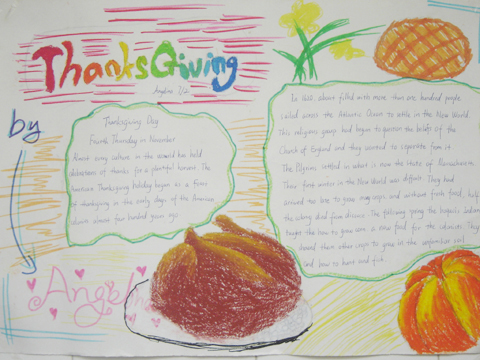 ThanksGiving
Angeline 7/2
by
Angeline
Thanksgiving Day
Fourth Thursday in November
Almost every culture in the world has held
celebrations of thanks for a plentiful harvest. The
American Thanksgiving holiday began as a feast
of thanksgiving in the early days of the American
colonies almost four hundred years ago
In 1620, a boat filled with more than one hundred people
sailed across the Atlantic Ocean to settle in the New World.
This religious group had begun to question the beliefs of the
Church of England and they wanted to separate from it.
The Pilgrims settled in what is now the state of Massachusetts.
Their first winter in the New World was difficult. They had
arrived too late to grow many crops, and without fresh food, half
the colony died from disease. The following spring the Iroquois Indians
taught them how to grow corn a new food for the colonists. They
showed them other crops to grow in the unfamiliar soil
and how to hunt and fish.